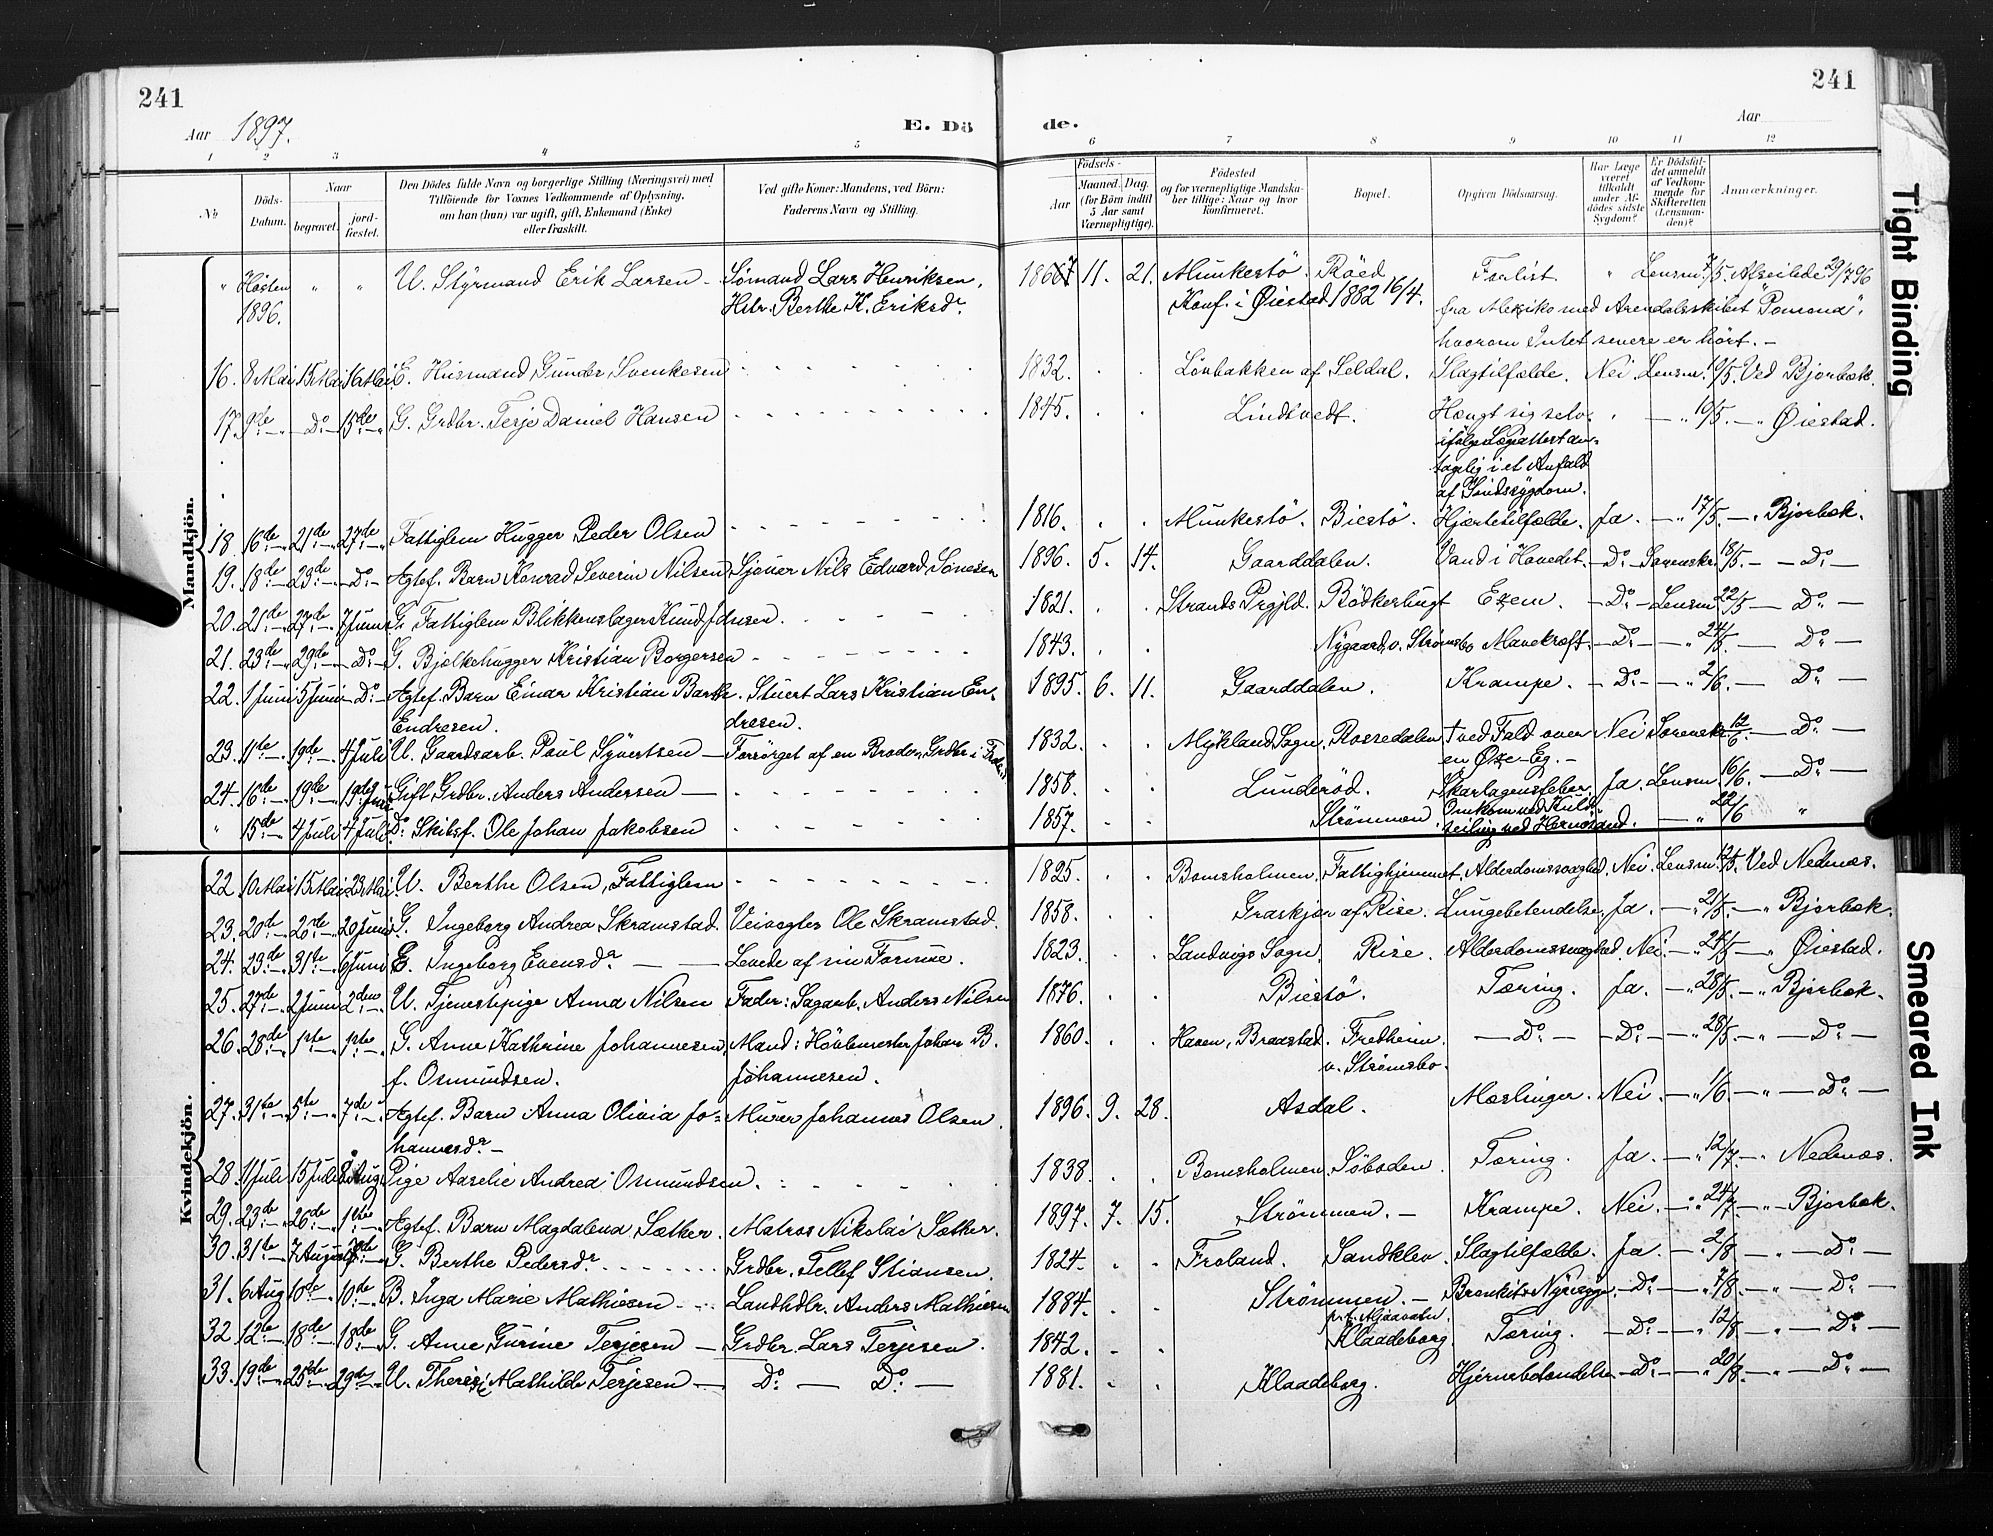 241
241
Aar 1897.
E. Dö
de.
Aar
1 2 3 4 5 6 7 8 9 10 11 12
No
Döds-Datum.
Naar
begravet.
jord-fæstet.
Den Dödes fulde Navn og borgerlige Stilling (Næringsvei) med
Tilföiende for Voxnes Vedkommende af Oplysning,
om han (hun) var ugift, gift, Enkemand (Enke)
eller fraskilt.
Ved gifte Koner: Mandens, ved Börn:
Faderens Navn og Stilling.
Födsels-
Aar
Maaned. Dag.
(for Börn indtil
5 Aar samt
Værnepligtige).
Födested
og for værnepligtige Mandska-
ber tillige: Naar og hvor
konfirmeret.
Bopæl.
Opgiven Dödsaarsag.
Har Læge
været
tilkaldt
under Af-
dödes sidste
Sygdom?
Er Dödsfal-
det anmeldt
af Vedkom-
mende for
Skifteretten
(Lensman-
den)?
Anmærkninger.
Mandkjön.
" Høsten " " U. Styrmand Erik Larsen - Sømand Lars Henriksen, 1867 11. 21. Munkestö. Röed Forlist. " Lensm. 7/5. Afseilede 29/7 96
1896. Hstr. Berthe K. Eriksdr. Konf. i Øiestad 1882 16/4. fra Mexiko med Arendalsskibet "Pomona",
hvorom Intet senere er hört. -
16. 8 Mai 15 Mai 16 Mai E. Husmand Gunder Svenkesen 1832. Lövbakken af Seldal. Slagtilfælde. Nei Lensm. 10/5. Ved Bjorbæk.
17. 9de Do 15de G. Grdbr. Terje Daniel Hansen 1845. Lindtvedt. Hængt sig selv, " — " 10/5. — " Øiestad.
ifølge Lægeattest an-
tagelig i et Anfald
af Sindssygdom.
18. 16de 21de 27de Fattiglem Hugger Peder Olsen 1816. Munkestö. Biestö. Hjertetilfælde. Ja. — " 17/5. — " Bjorbæk.
19. 18de 23de Do Ægtef. Barn Konrad Severin Nilsen Sjouer Nils Edvard Sönesen 1896. 5. 14. Gaarddalen. Vand i Hovedet. Do Sorenskr. 18/5. — Do —
20. 21de 27de 7 Juni G. Fattiglem Blikkenslager Knud Johnsen. 1821. Strands Prgjld. Bödkerbugt Exem. Do Lensm. 22/5 — Do —
21. 23de 29de Do G. Bjelkehugger Kristian Borgersen 1843. Nygaard v. Strömsbo Mavekræft. Do — " 24/5. — Do —
22. 1 Juni 5 Juni Do Ægtef. Barn Einar Kristian Barthe Stuert Lars Kristian En- 1895. 6. 11. Gaarddalen. Krampe. Do — " 2/6. — Do —
Endresen. dresen.
23. 11te 19de 4 Juli U. Gaardsarb. Poul Syvertsen — Forsörget af en Broder, Grdbr. i 1832. Mykland Sogn. Rossedalen † ved Fald over Nei Sorenskr. 12/6. — Do —
en Øxe-Eg. —
24. 16de 19de 19de Gift Grdbr. Anders Andersen — 1858. Lunderöd. Skarlagensfeber. Ja. Lensm. 16/6. — Do —
" 15de 4 Juli 4 Juli Do Skibsf. Ole Johan Jakobsen 1857. Strömmen. Omkom ved Kuld-
seiling ved Hernösand. — " 22/6 "
Kvindekjön.
22. 10 Mai 15 Mai 23 Mai U. Berthe Olsen, Fattiglem 1825. Bomsholmen. Fattighjemmet. Alderdomssvaghed. Nei. Lensm. 12/5. Ved Nednæs.
23. 20de 26de 20 Juni G. Ingeborg Andrea Skramstad. Veivogter Ole Skramstad. 1858. Graskjær af Rise. Lungebetendelse. Ja. — 21/5. — " Bjorbæk.
24. 23de 31te 6 Juni E. Ingeborg Evensdr. — — Levede af sin Formue. 1823. Landvigs Sogn. Rise. Alderdomssvaghed. Nei. — 24/5 — " Øiestad.
25. 27de 2 Juni 2den U. Tjenestepige Anna Nilsen Fader: Sagarb. Anders Nilsen 1876. Biestö. Tæring. Ja. — " 28/5. — " Bjorbæk.
26. 28de 1ste 1ste G. Anne Kathrine Johannesen, Mand: Hövlemester Johan B. 1860. Haven, Braastad. Fredheim — Do — Do — " 28/5. — " — Do —
f. Osmundsen. Johannesen. v. Strömsbo.
27. 31te 5te 7de Ægtef. Barn Anna Olivia Jo- Murer Johannes Olsen 1896. 9. 28. Asdal. Mæslinger. Nei. — " 1/6. — " — Do —
hannesdr. —
28. 11 Juli 15 Juli 8 Aug. Pige Aaselie Andrea Osmundsen. 1838. Bomsholmen. Söboden. Tæring. Ja. — " 12/7. — " Nednæs.
29. 23de 26de 1ste Ægtef. Barn Magdalena Sæther. Matros Nikolai Sæther. 1897. 7. 15. Strömmen. — Krampe. Nei. — " 24/7 — " Bjorbæk.
30. 31te 7 August G. Berthe Pedersdr. Grdbr. Tellef Stiansen. 1824. Froland. Sandklev. Slagtilfælde. Ja. — " 2/8 — " — Do —
31. 6 Aug 10de 10de B. Inga Marie Mathiesen Landhdlr. Anders Mathiesen 1884. Strömmen. — Do — 7/8. — " — Do —
32. 12te 18de 18de G. Anne Gurine Terjesen — Grdbr. Lars Terjesen. 1842. Klaadeborg. Tæring. — Do — " 12/8 — " — Do —
33. 19de 25de 29de U. Therese Mathilde Terjesen — Do — Do — 1881. Klaadeborg. Hjernebetendelse — Do — " 20/8. — " — Do —
Tight Binding
Smeared Ink